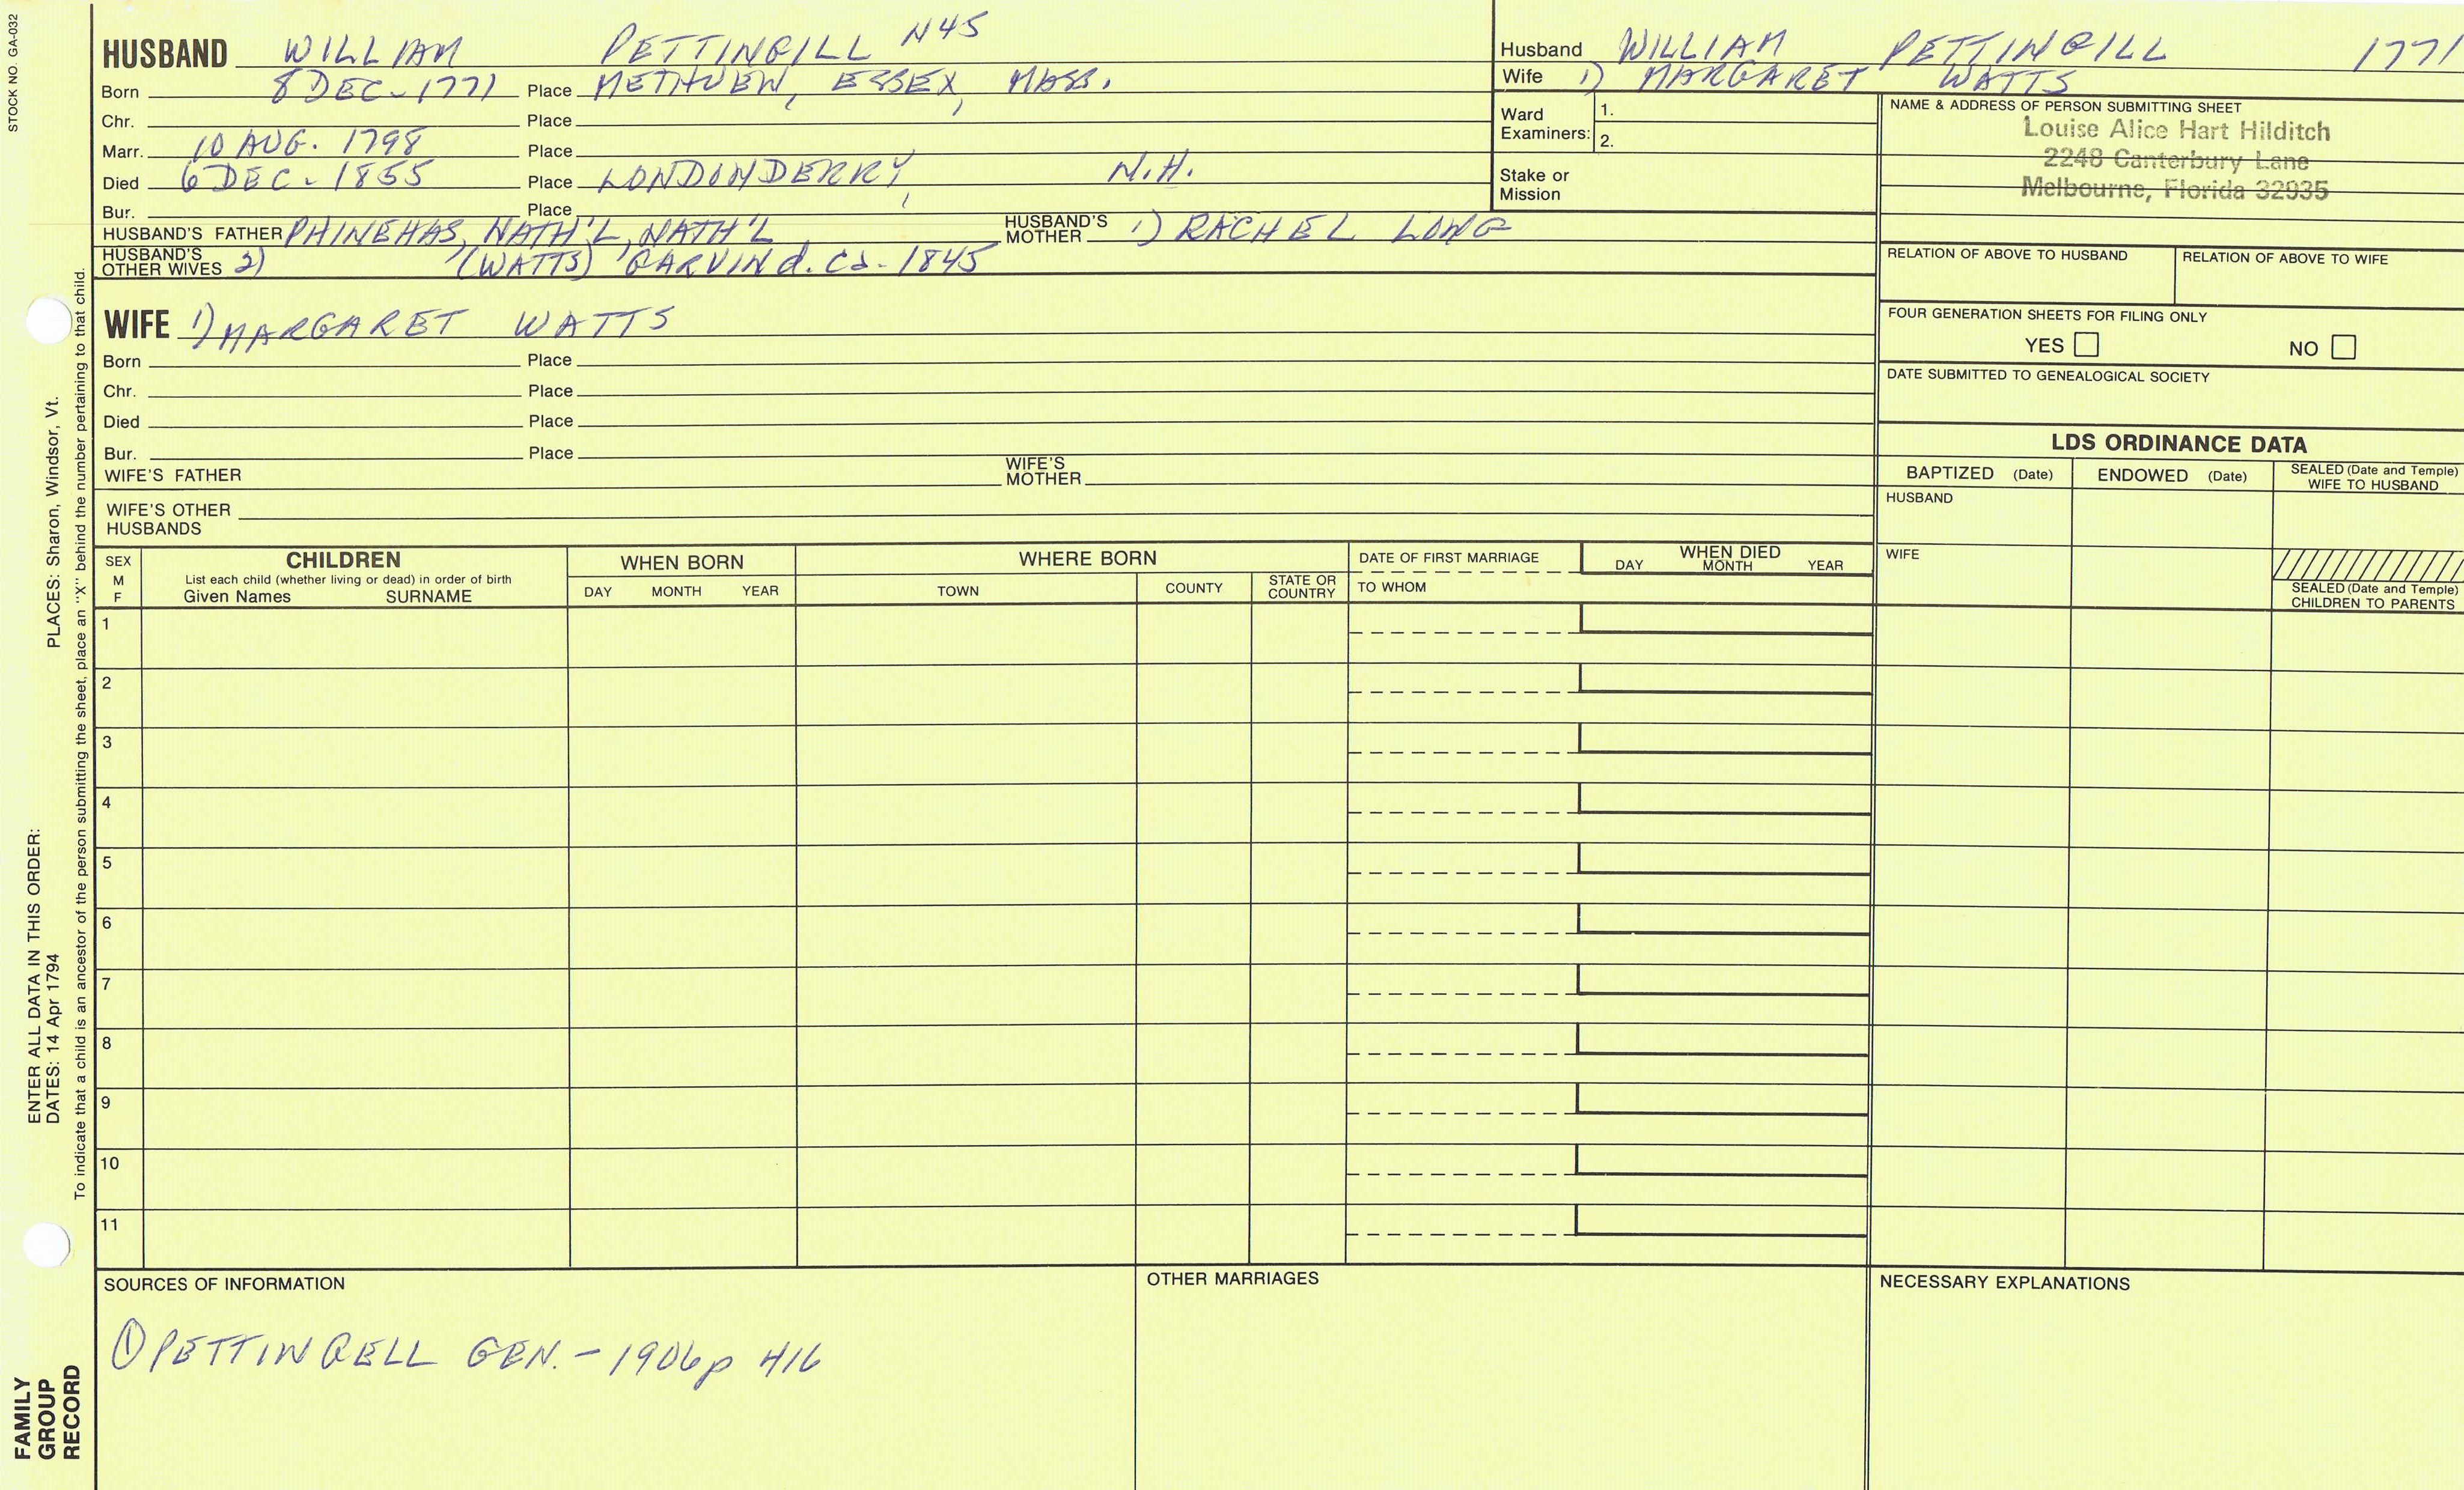 STOCK NO. GA-032
HUSBAND WILLIAM PETTINGILL N45
Born 8 DEC - 1771 Place METHUEN, ESSEX, MASS.
Chr. Place
Marr. 10 AUG. 1798 Place
Died 6 DEC - 1855 Place LONDONDERRY, N.H.
Bur. Place
HUSBAND'S FATHER PHINEHAS, NATH'L, NATH'L HUSBAND'S MOTHER 1) RACHEL LONG
HUSBAND'S OTHER WIVES 2) (WATTS) GARVIN d. Ca - 1845
WIFE 1) MARGARET WATTS
Born Place
Chr. Place
Died Place
Bur. Place
WIFE'S FATHER WIFE'S MOTHER
WIFE'S OTHER HUSBANDS
Husband WILLIAM PETTINGILL 1771
Wife 1) MARGARET WATTS
Ward Examiners: 1.
2.
Stake or Mission
NAME & ADDRESS OF PERSON SUBMITTING SHEET
Louise Alice Hart Hilditch
2248 Canterbury Lane
Melbourne, Florida 32935
RELATION OF ABOVE TO HUSBAND RELATION OF ABOVE TO WIFE
FOUR GENERATION SHEETS FOR FILING ONLY
YES NO
DATE SUBMITTED TO GENEALOGICAL SOCIETY
LDS ORDINANCE DATA
BAPTIZED (Date) ENDOWED (Date) SEALED (Date and Temple) WIFE TO HUSBAND
HUSBAND
WIFE
SEALED (Date and Temple) CHILDREN TO PARENTS
SEX M F
CHILDREN
List each child (whether living or dead) in order of birth
Given Names SURNAME
WHEN BORN
DAY MONTH YEAR
WHERE BORN
TOWN COUNTY STATE OR COUNTRY
DATE OF FIRST MARRIAGE
TO WHOM
WHEN DIED
DAY MONTH YEAR
1
2
3
4
5
6
7
8
9
10
11
SOURCES OF INFORMATION
① PETTINGELL GEN. - 1906 p 416
OTHER MARRIAGES
NECESSARY EXPLANATIONS
FAMILY GROUP RECORD
ENTER ALL DATA IN THIS ORDER:
DATES: 14 Apr 1794 PLACES: Sharon, Windsor, Vt.
To indicate that a child is an ancestor of the person submitting the sheet, place an "X" behind the number pertaining to that child.